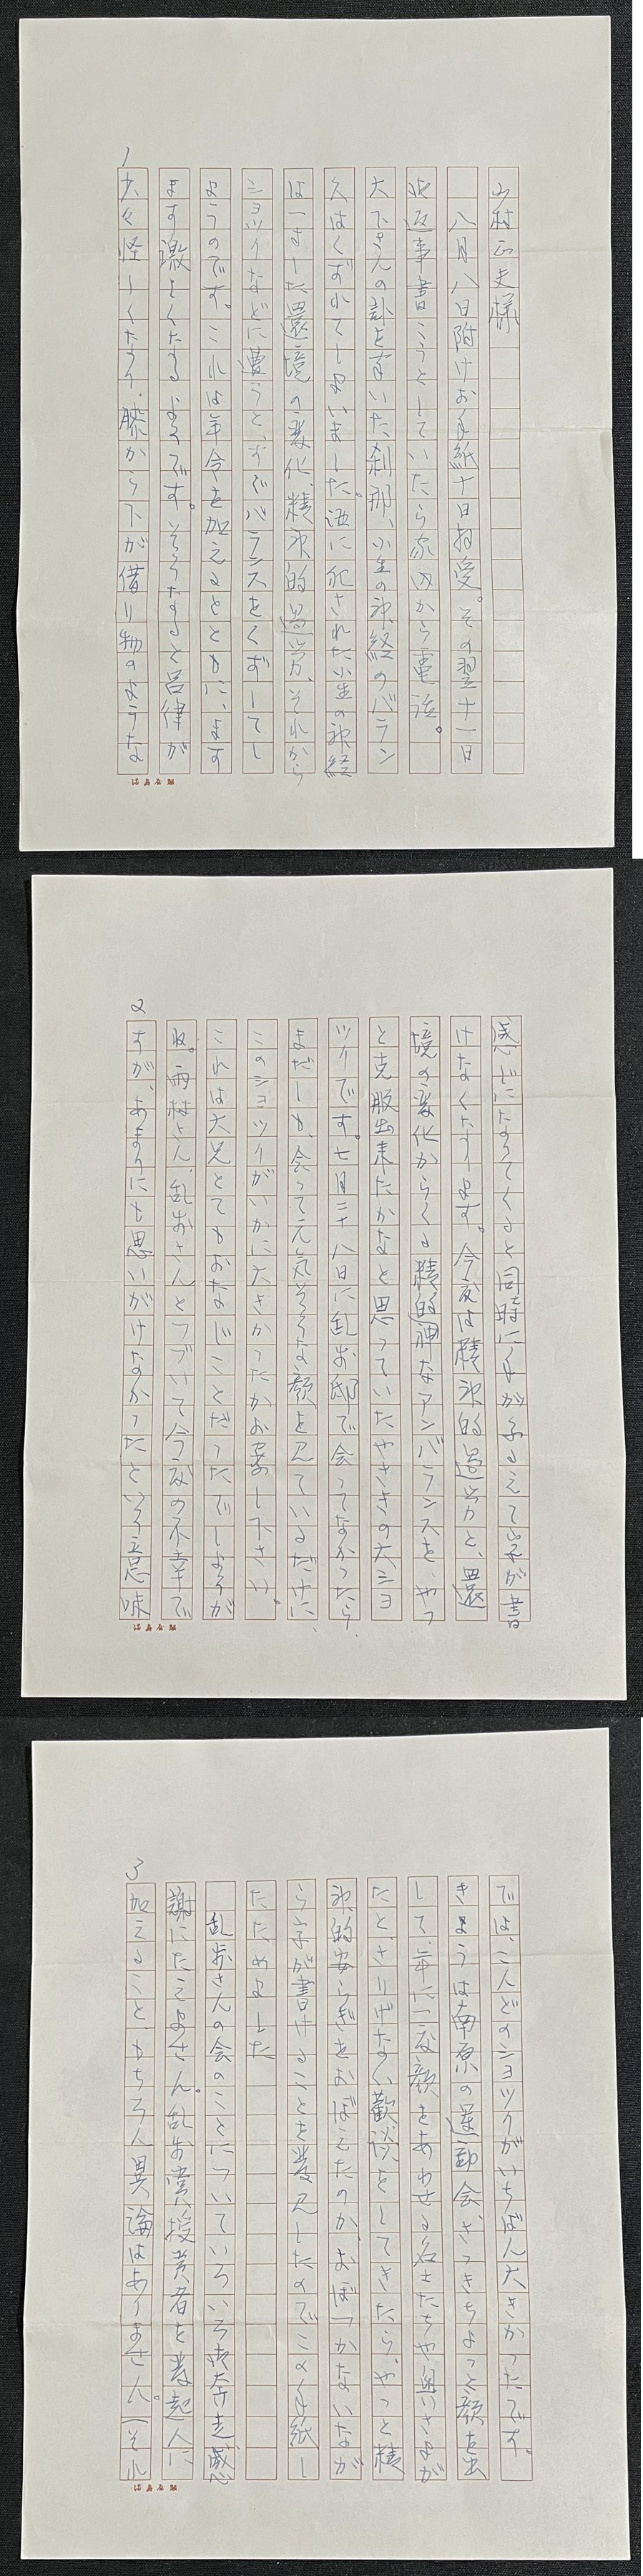 山村正夫様
八月八日附けお手紙十日拝受。その翌十一日
御返事書こうとしていたら家内から電話。
大下さんの訃を聞いた刹那、小生の神経のバラン
スはくずれてしまいました。酒に犯された小生の神経
は一寸した環境の変化、精神的過労、それから
ショックなどに遭うと、すぐバランスをくずしてし
まうのです。これは年令を加えるとともに、ます
ます激しくなるようです。そうなると呂律が
少々怪しくなり、膝から下が借り物のような
1
感じになってくると同時に手がふるえて字が書
けなくなります。今度は精神的過労と、環
境の変化からくる精神的なアンバランスを、やっ
と克服出来たかなと思っていたやさきの大ショ
ックです。七月二十八日に乱歩邸で会ってなかったら
まだしも、会って元気そうな顔を見ているだけに、
このショックがいかに大きかったかお察し下さい。
これは大兄とてもおなじことだったでしょうが
ね。雨村さん、乱歩さんとつづいて今度の不幸で
すが、あまりにも思いがけなかったという意味
2
では、こんどのショックがいちばん大きかったです。
きょうは南原の運動会、さっきちょっと顔を出
して、年に一度顔をあわせる名士たちや奥さまが
たと、さりげない歓談をしてきたら、やっと精
神的安らぎをおぼえたのか、おぼつかないなが
ら字が書けることを発見したのでこの手紙し
たためました
乱歩さんの会のことについていろいろ御奔走感
謝にたえません。乱歩賞授賞者を発起人に
加えること、もちろん異論はありません。(それ
3